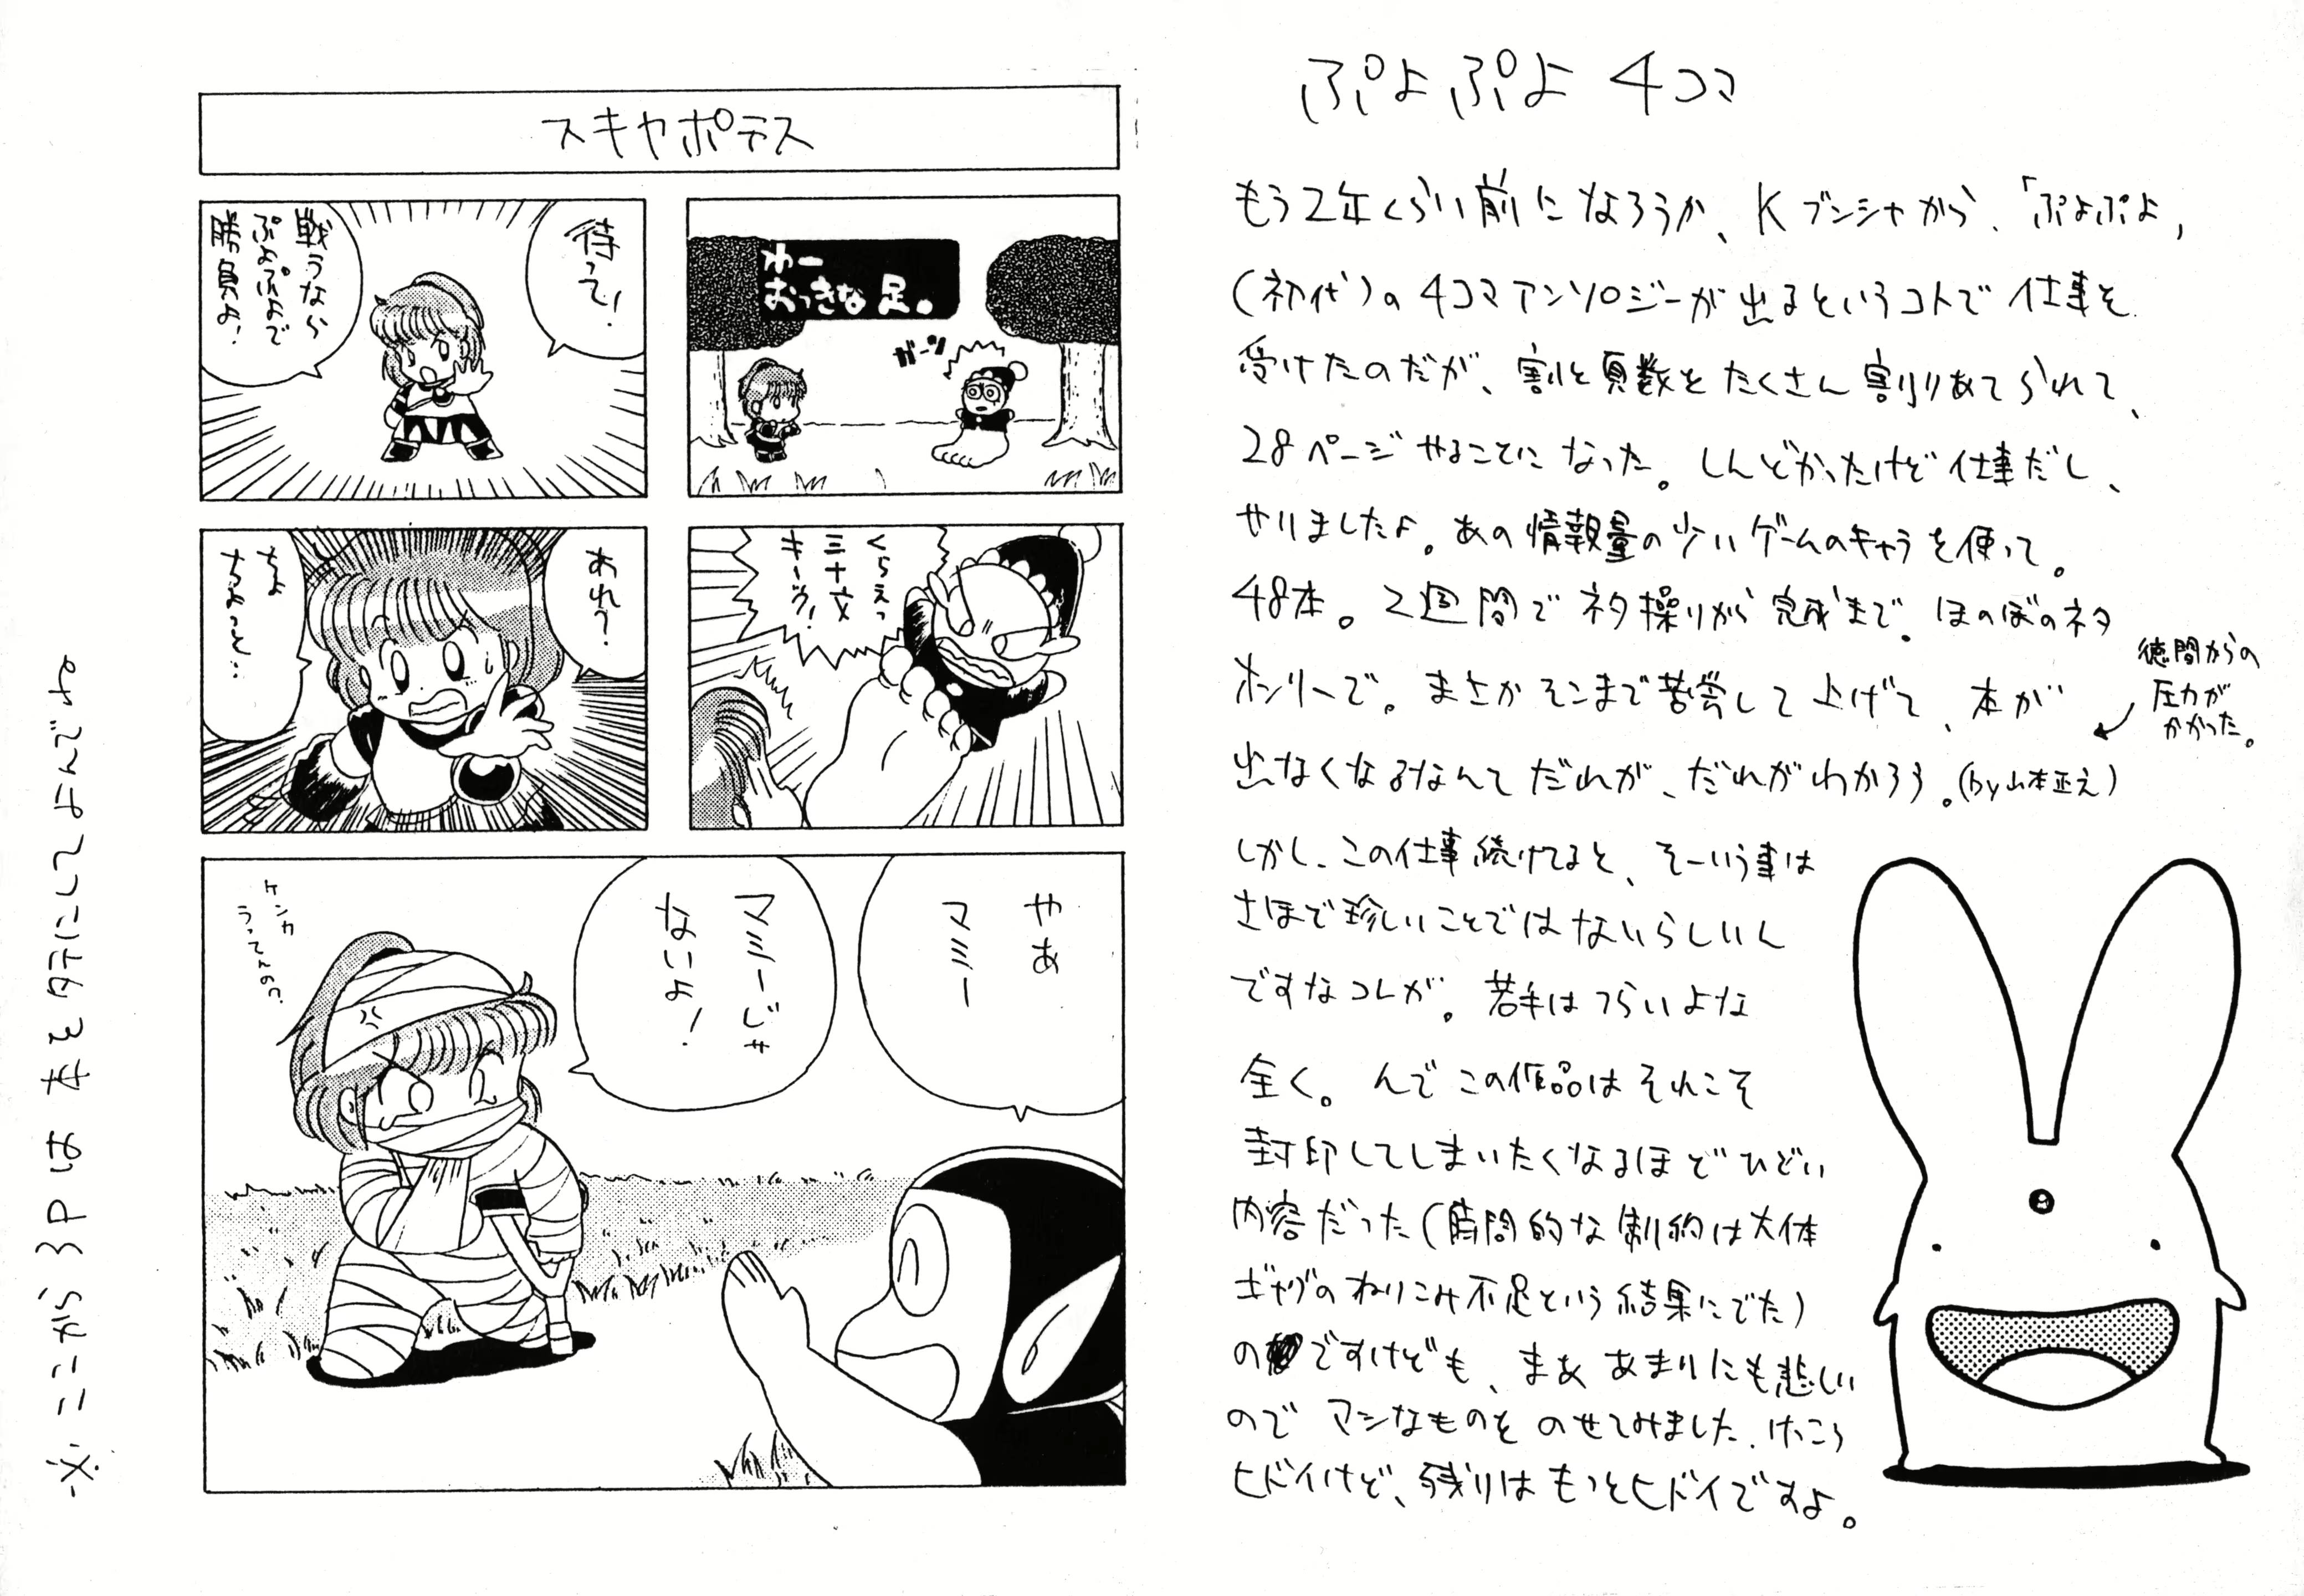 ぷよぷよ 4コマ
もう2年くらい前になろうか、Kブンシャから、「ぷよぷよ」
(初代)の4コマアンソロジーが出るというコトで仕事を
受けたのだが、割と頁数をたくさん割りあてられて、
28ページやることになった。しんどかったけど仕事だし、
やりましたよ。あの情報量の少いゲームのキャラを使って。
48本。2週間でネタ操りから完成まで。ほのぼのネタ
オンリーで。まさかそこまで苦労して上げて、本が
徳間からの
圧力が
かかった。
出なくなるなんてだれが、だれがわかろう。(by山本正之)
しかし、この仕事続けてると、そーいう事は
さほど珍しいことではないらしいん
ですなコレが。若手はつらいよな
全く。んでこの作品はそれこそ
封印してしまいたくなるほどひどい
内容だった(時間的な制約は大体
ギャグのねりこみ不足という結果にでた)
のですけども、まあ あまりにも悲しい
ので マシなものを のせてみました。けっこう
ヒドイけど、残りは もっとヒドイですよ。
スキヤポデス
わー
おっきな足。
ガーン
待って!
戦うなら
ぷよぷよで
勝負よ!
くらえっ
三十文
キーック!
あれ?
ちょ
ちょっと…
やあ
マミー
マミーじゃ
ないよ!
ケンカ
うってんの?
※ここから3Pは 本をタテにしてよんでよ